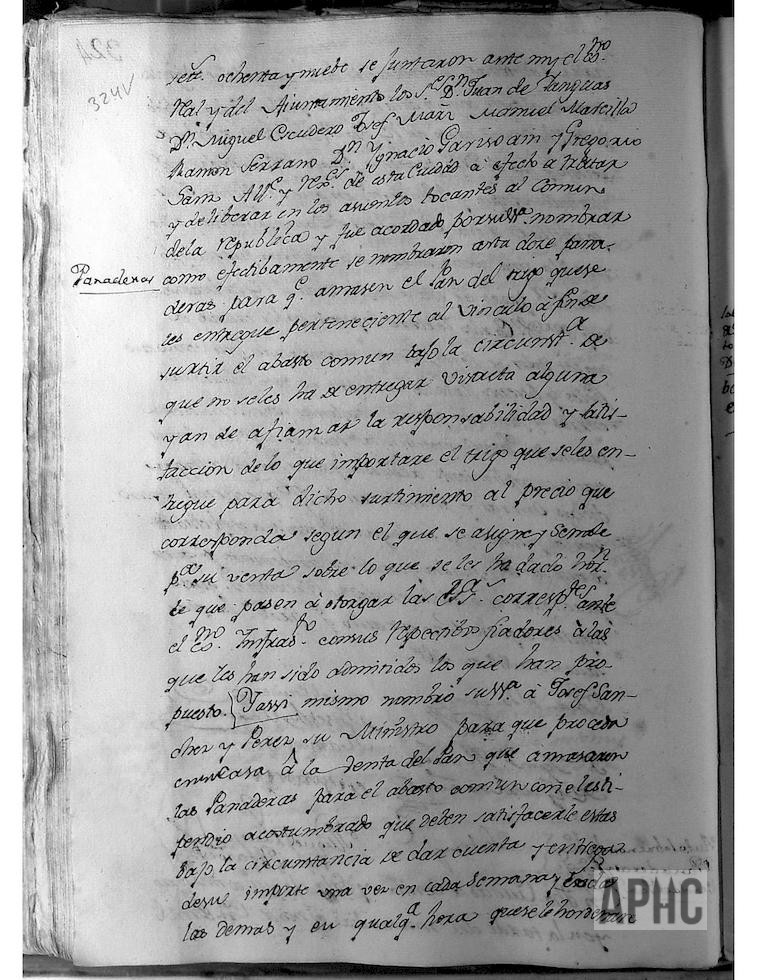 324
324V
setᵉ. ochenta y nuebe se juntaron ante my el esⁿᵒ.
Real y del Aiuntamiento los Sʳᵉˢ Dⁿ Juan de Yanguas
Dⁿ Miguel Escudero Josef Marz Manuel Marcilla
Ramon Serrano Dⁿ Ygnacio Garisoain y Gregorio
Sanz Allᵉ y Rexˢ de esta Ciudad à efecto à tratar
y deliberar en los asuentos tocantes al Comun
dela republica y fue acordado por sus sᵃ nombrar
Panaderas
como efectibamente se nombraron asta doze pana-
deras para qᵉ amasen el Pan del trigo quese
les entregue perteneciente al vinculo à fin de
surtir el abasto comun bajo la circunstᵃ de
que no seles ha de entregar visaeta alguna
y an de afianzar la responsabilidad y satis-
faccion delo que importare el trigo que seles en-
tregue para dicho surtimiento al precio que
corresponda segun el que se asigne y semde
pᵃ su venta sobre lo que se les ha dado hoⁿ
de que pasen à otorgar las essʳᵃˢ correspᵗᵉˢ ante
el esⁿᵒ. Infrasᵗᵒ consus respectibos fiadores à las
que les han sido admitidos los que han pro-
puesto. Yassi mismo nombró sus sᵃ à Josef San-
chez y Perez su Ministro para que proceda
en su casa à la Venta del Pan que amasaren
las Panaderas para el abasto comun con el esti-
pendio acostumbrado que deben satisfacerle estas
bajo la circunstancia de dar cuenta y entregar
desu importe una vez en cada semana y
las demas y en qualqᵃ hora quese le hordenare
APHC